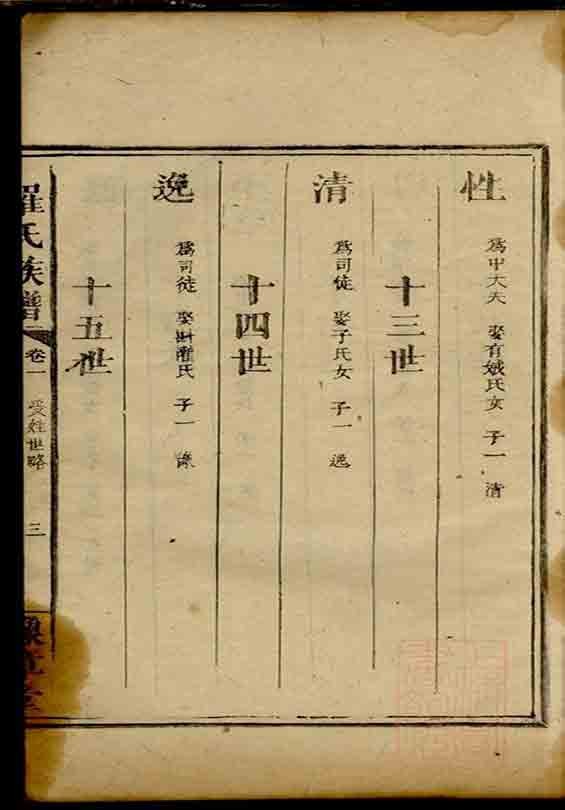 性
為中大夫 娶有娀氏女 子一 清
十三世
清
為司徒 娶子氏女 子一 逸
十四世
逸
為司徒 娶 氏 子一
十五世
羅氏族譜
卷一
受姓世略
三